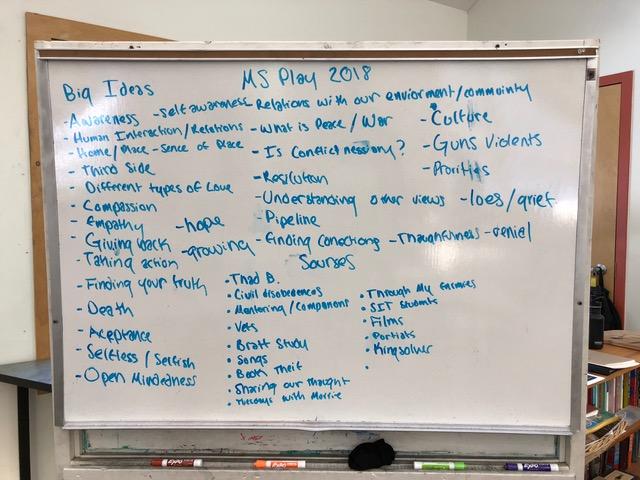 MS Play 2018
Big Ideas
- Awareness - self awareness Relations with our enviorment/community
- Human Interaction/Relations
- Home/Place - Sence of Place
- Third Side
- Different types of Love
- Compassion
- Empathy - hope
- Giving back - growing
- Taking action
- Finding your truth
- Death
- Aceptance
- Selfless / Selfish
- Open Mindedness
- What is Peace / War
- Is Conflict nessary?
- Resilution
- Understanding other views - loes/grief
- Pipeline
- Finding conections - Thoughtfulness - deniel
- Culture
- Guns Violents
- Prorities
Sourses
• Thad B.
• Civil disobedences
• Mentoring/Component
• Vets
• Bratt Study
• Songs
• Book Theif
• Sharing our thought
• Tuesdays with Morrie
• Through My Enemies
• SIT Students
• Films
• Portiats
• Kingsolver
•
EXPO
EXPO
EXPO